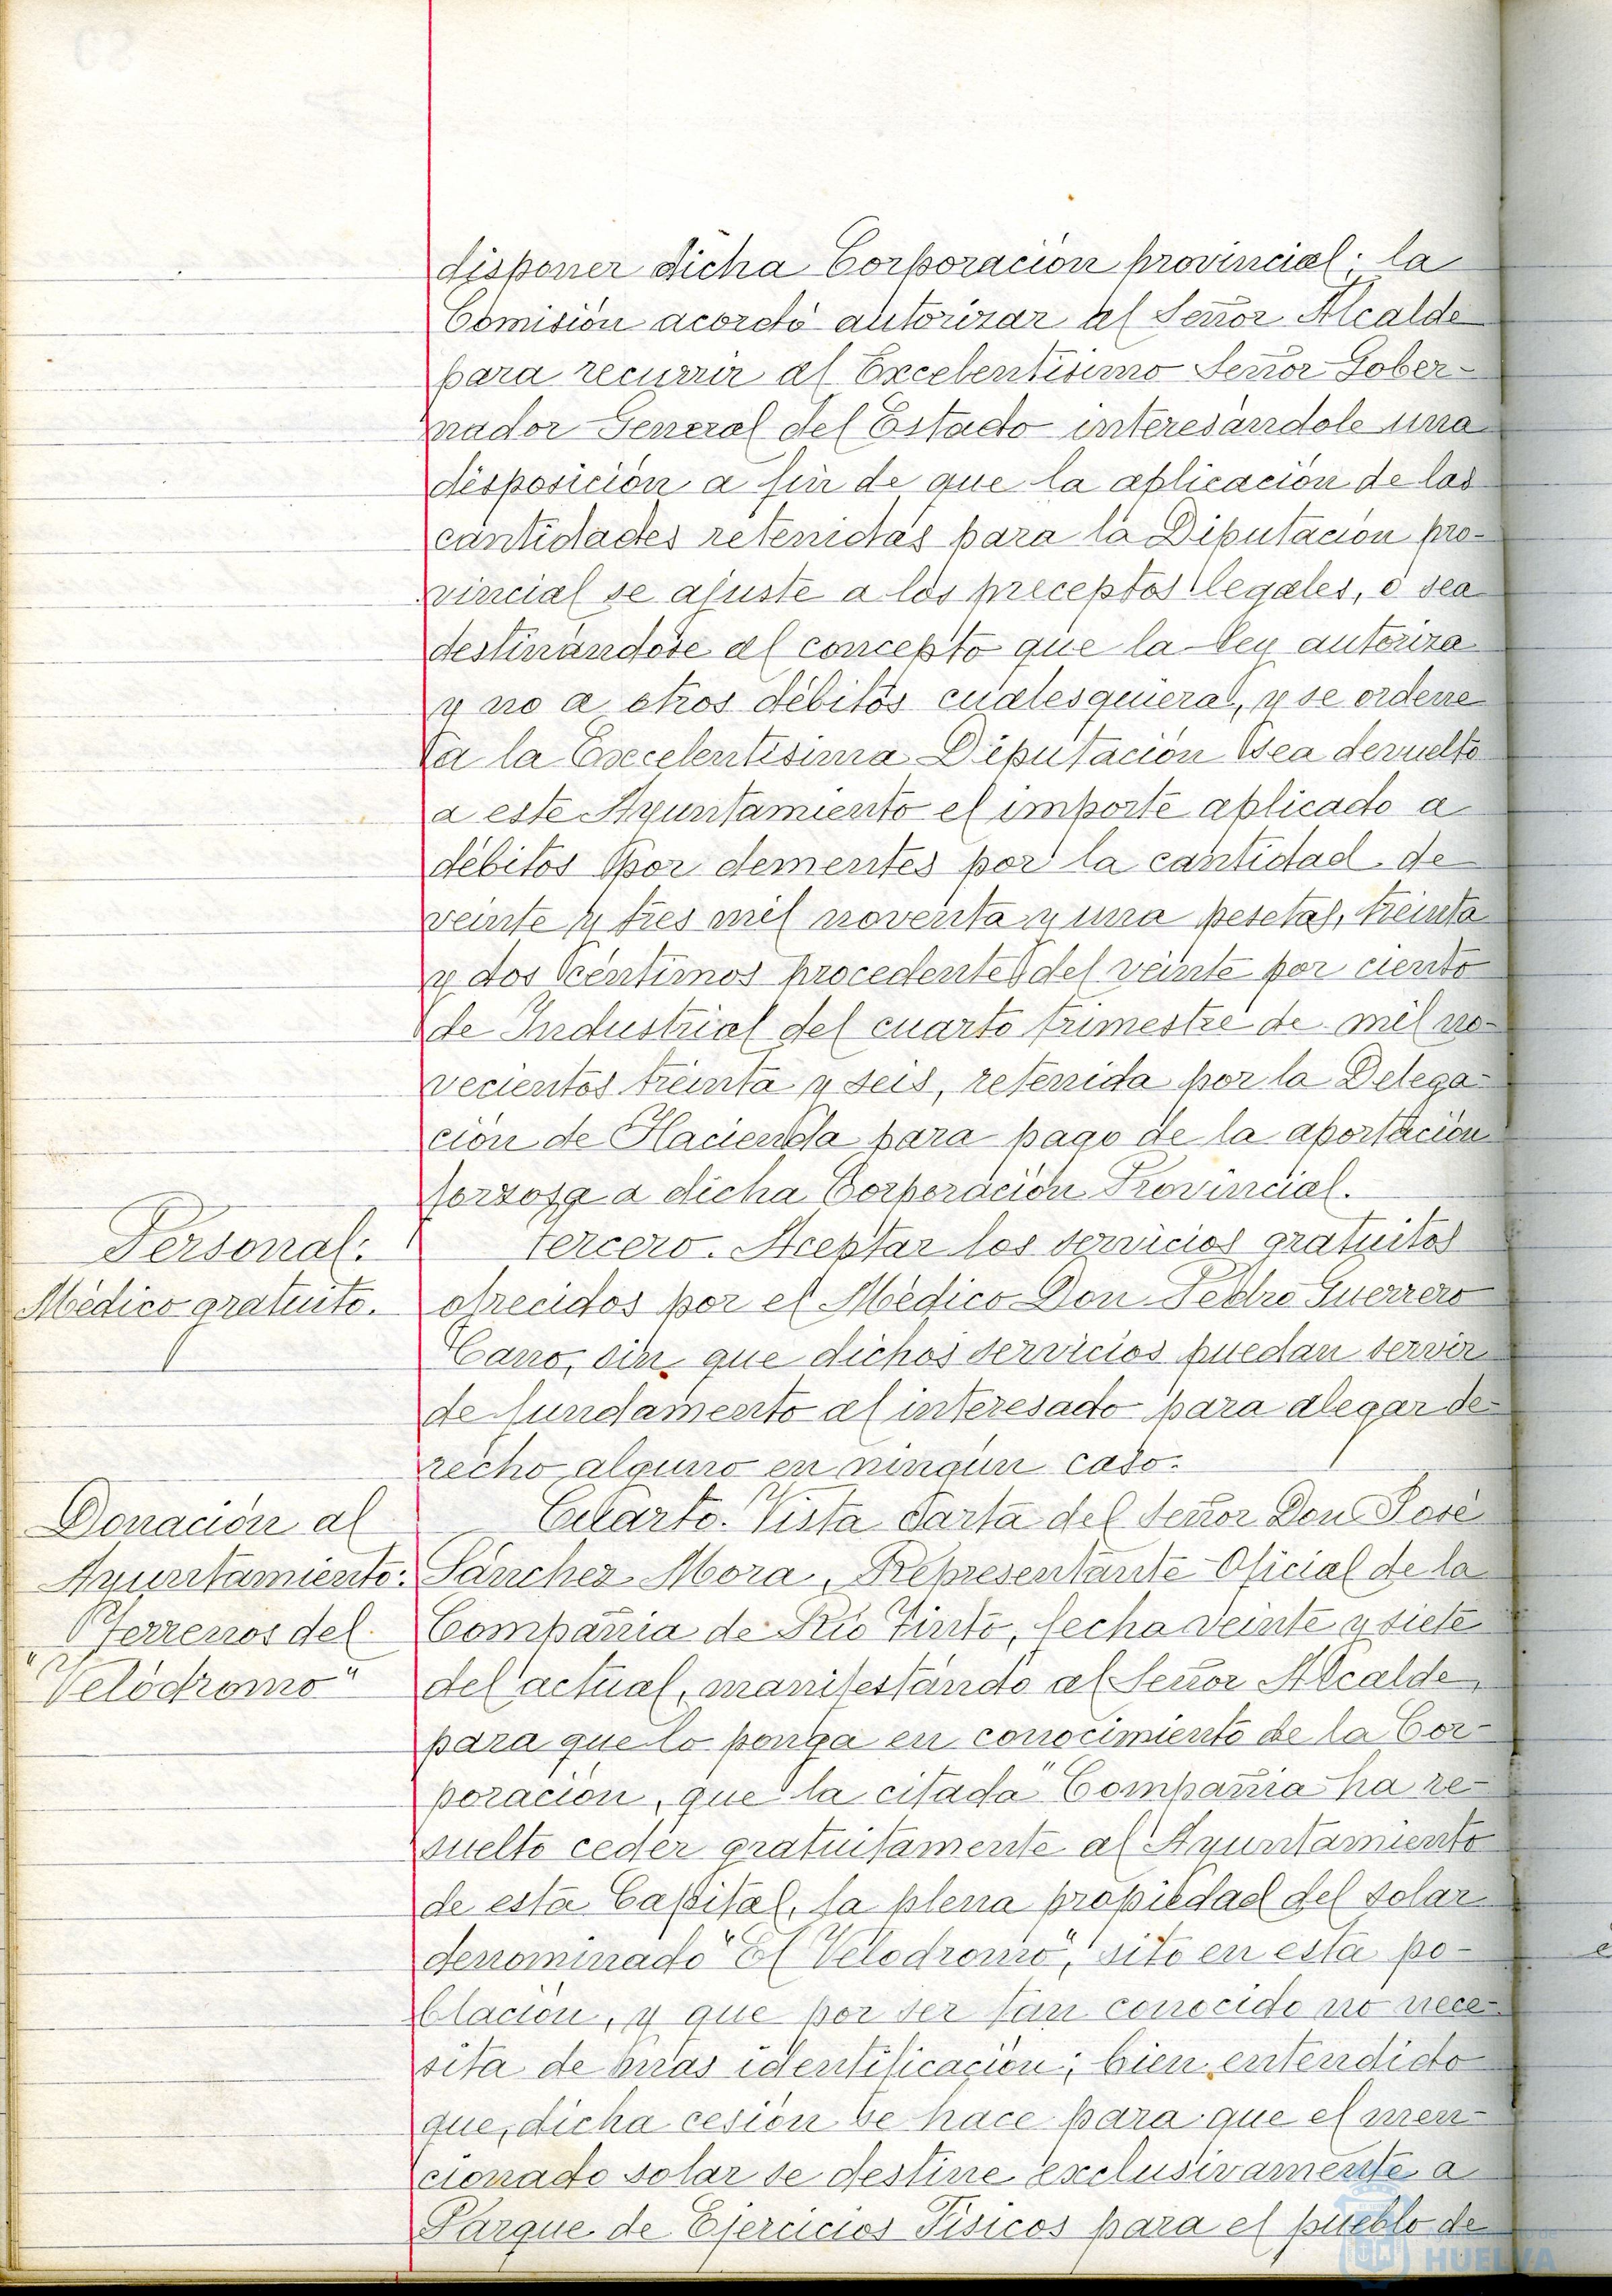 disponer dicha Corporación provincial; la
Comisión acordó autorizar al Señor Alcalde
para recurrir al Excelentísimo Señor Gober-
nador General del Estado interesándole una
disposición a fin de que la aplicación de las
cantidades retenidas para la Diputación pro-
vincial se ajuste a los preceptos legales, o sea
destinándose al concepto que la Ley autoriza
y no a otros débitos cualesquiera, y se ordene
a la Excelentísima Diputación sea devuelto
a este Ayuntamiento el importe aplicado a
débitos por dementes por la cantidad de
veinte y tres mil noventa y una pesetas, treinta
y dos céntimos procedentes del veinte por ciento
de Industrial del cuarto trimestre de mil no-
vecientos treinta y seis, retenida por la Delega-
ción de Hacienda para pago de la aportación
forzosa a dicha Corporación Provincial.
Personal:
Médico gratuito.
Tercero. Aceptar los servicios gratuitos
ofrecidos por el Médico Don Pedro Guerrero
Cano, sin que dichos servicios puedan servir
de fundamento al interesado para alegar de-
recho alguno en ningún caso.
Donación al
Ayuntamiento:
Terrenos del
"Velódromo"
Cuarto. Vista carta del Señor Don José
Sánchez Mora, Representante Oficial de la
Compañía de Río Tinto, fecha veinte y siete
del actual, manifestando al Señor Alcalde,
para que lo ponga en conocimiento de la Cor-
poración, que la citada Compañía ha re-
suelto ceder gratuitamente al Ayuntamiento
de esta Capital, la plena propiedad del solar
denominado "El Velodromo", sito en esta po-
blación, y que por ser tan conocido no nece-
sita de más identificación; bien entendido
que, dicha cesión se hace para que el men-
cionado solar se destine exclusivamente a
Parque de Ejercicios Físicos para el pueblo de
HUELVA